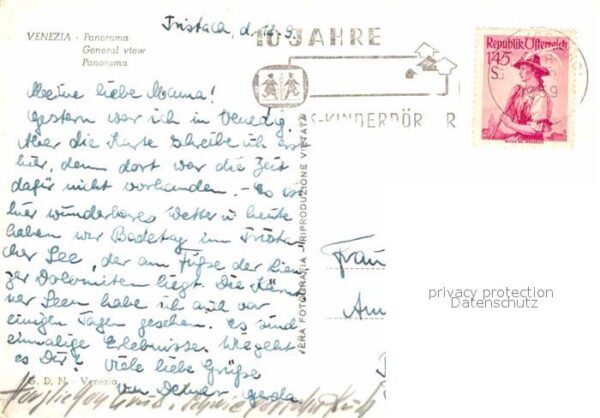 Tristach, d. 12.9.
VENEZIA - Panorama
General view
Panorama
10 JAHRE
S-KINDERDÖRFER
Republik Österreich
1'45
S
Meine liebe Mama!
Gestern war ich in Venedig,
Aber die Karte schreibe ich erst
hier, denn dort war die Zeit
dafür nicht vorhanden. - Es ist
hier wunderbares Wetter u. heute
haben wir Badetag im Trista-
cher See, der am Fuße der Lien-
zer Dolomiten liegt. Die Kärnt-
ner Seen habe ich auch vor
einigen Tagen gesehen. Es sind
einmalige Erlebnisse. Wie geht
es Dir? Viele liebe Grüße
von Deiner Gerda
Frau
VERA FOTOGRAFIA - RIPRODUZIONE VIETATA
privacy protection
Datenschutz
G. D. N. - Venezia
Herzlichen Gruß